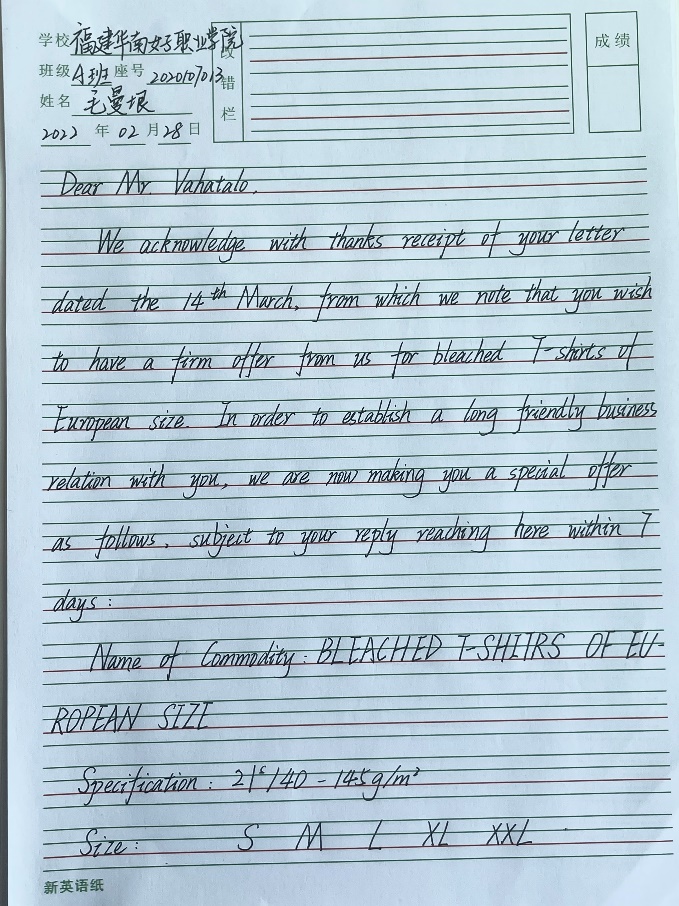 学校 福建华南女子职业学院
班级 A班 座号 2020107013
姓名 毛曼垠
2022 年 02 月 28 日
改错栏
成绩
Dear Mr. Vahatalo,
We acknowledge with thanks receipt of your letter
dated the 14th March, from which we note that you wish
to have a firm offer from us for bleached T-shirts of
European size. In order to establish a long friendly business
relation with you, we are now making you a special offer
as follows, subject to your reply reaching here within 7
days:
Name of Commodity: BLEACHED T-SHITRS OF EU-
ROPEAN SIZE
Specification: 21s/140-145g/m²
Size: S M L XL XXL
新英语纸